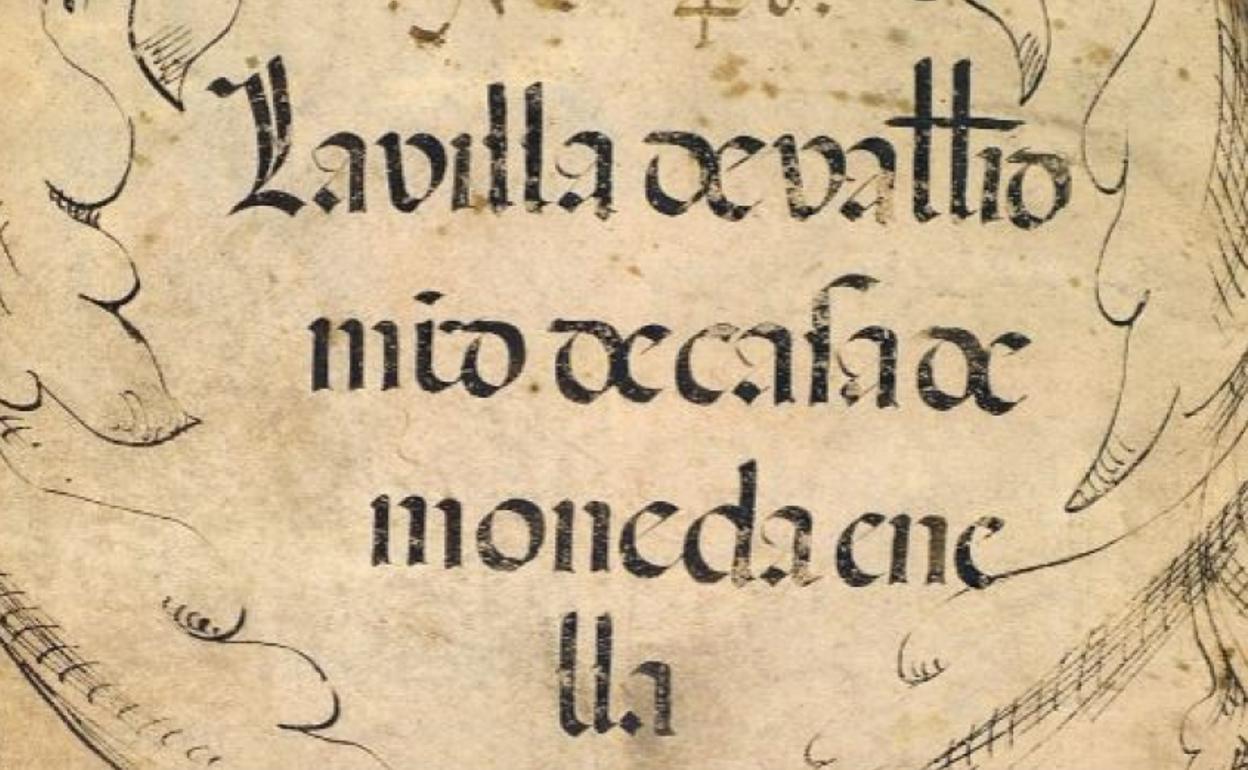 La villa de vallid
mid de casa de
moneda ene
lla